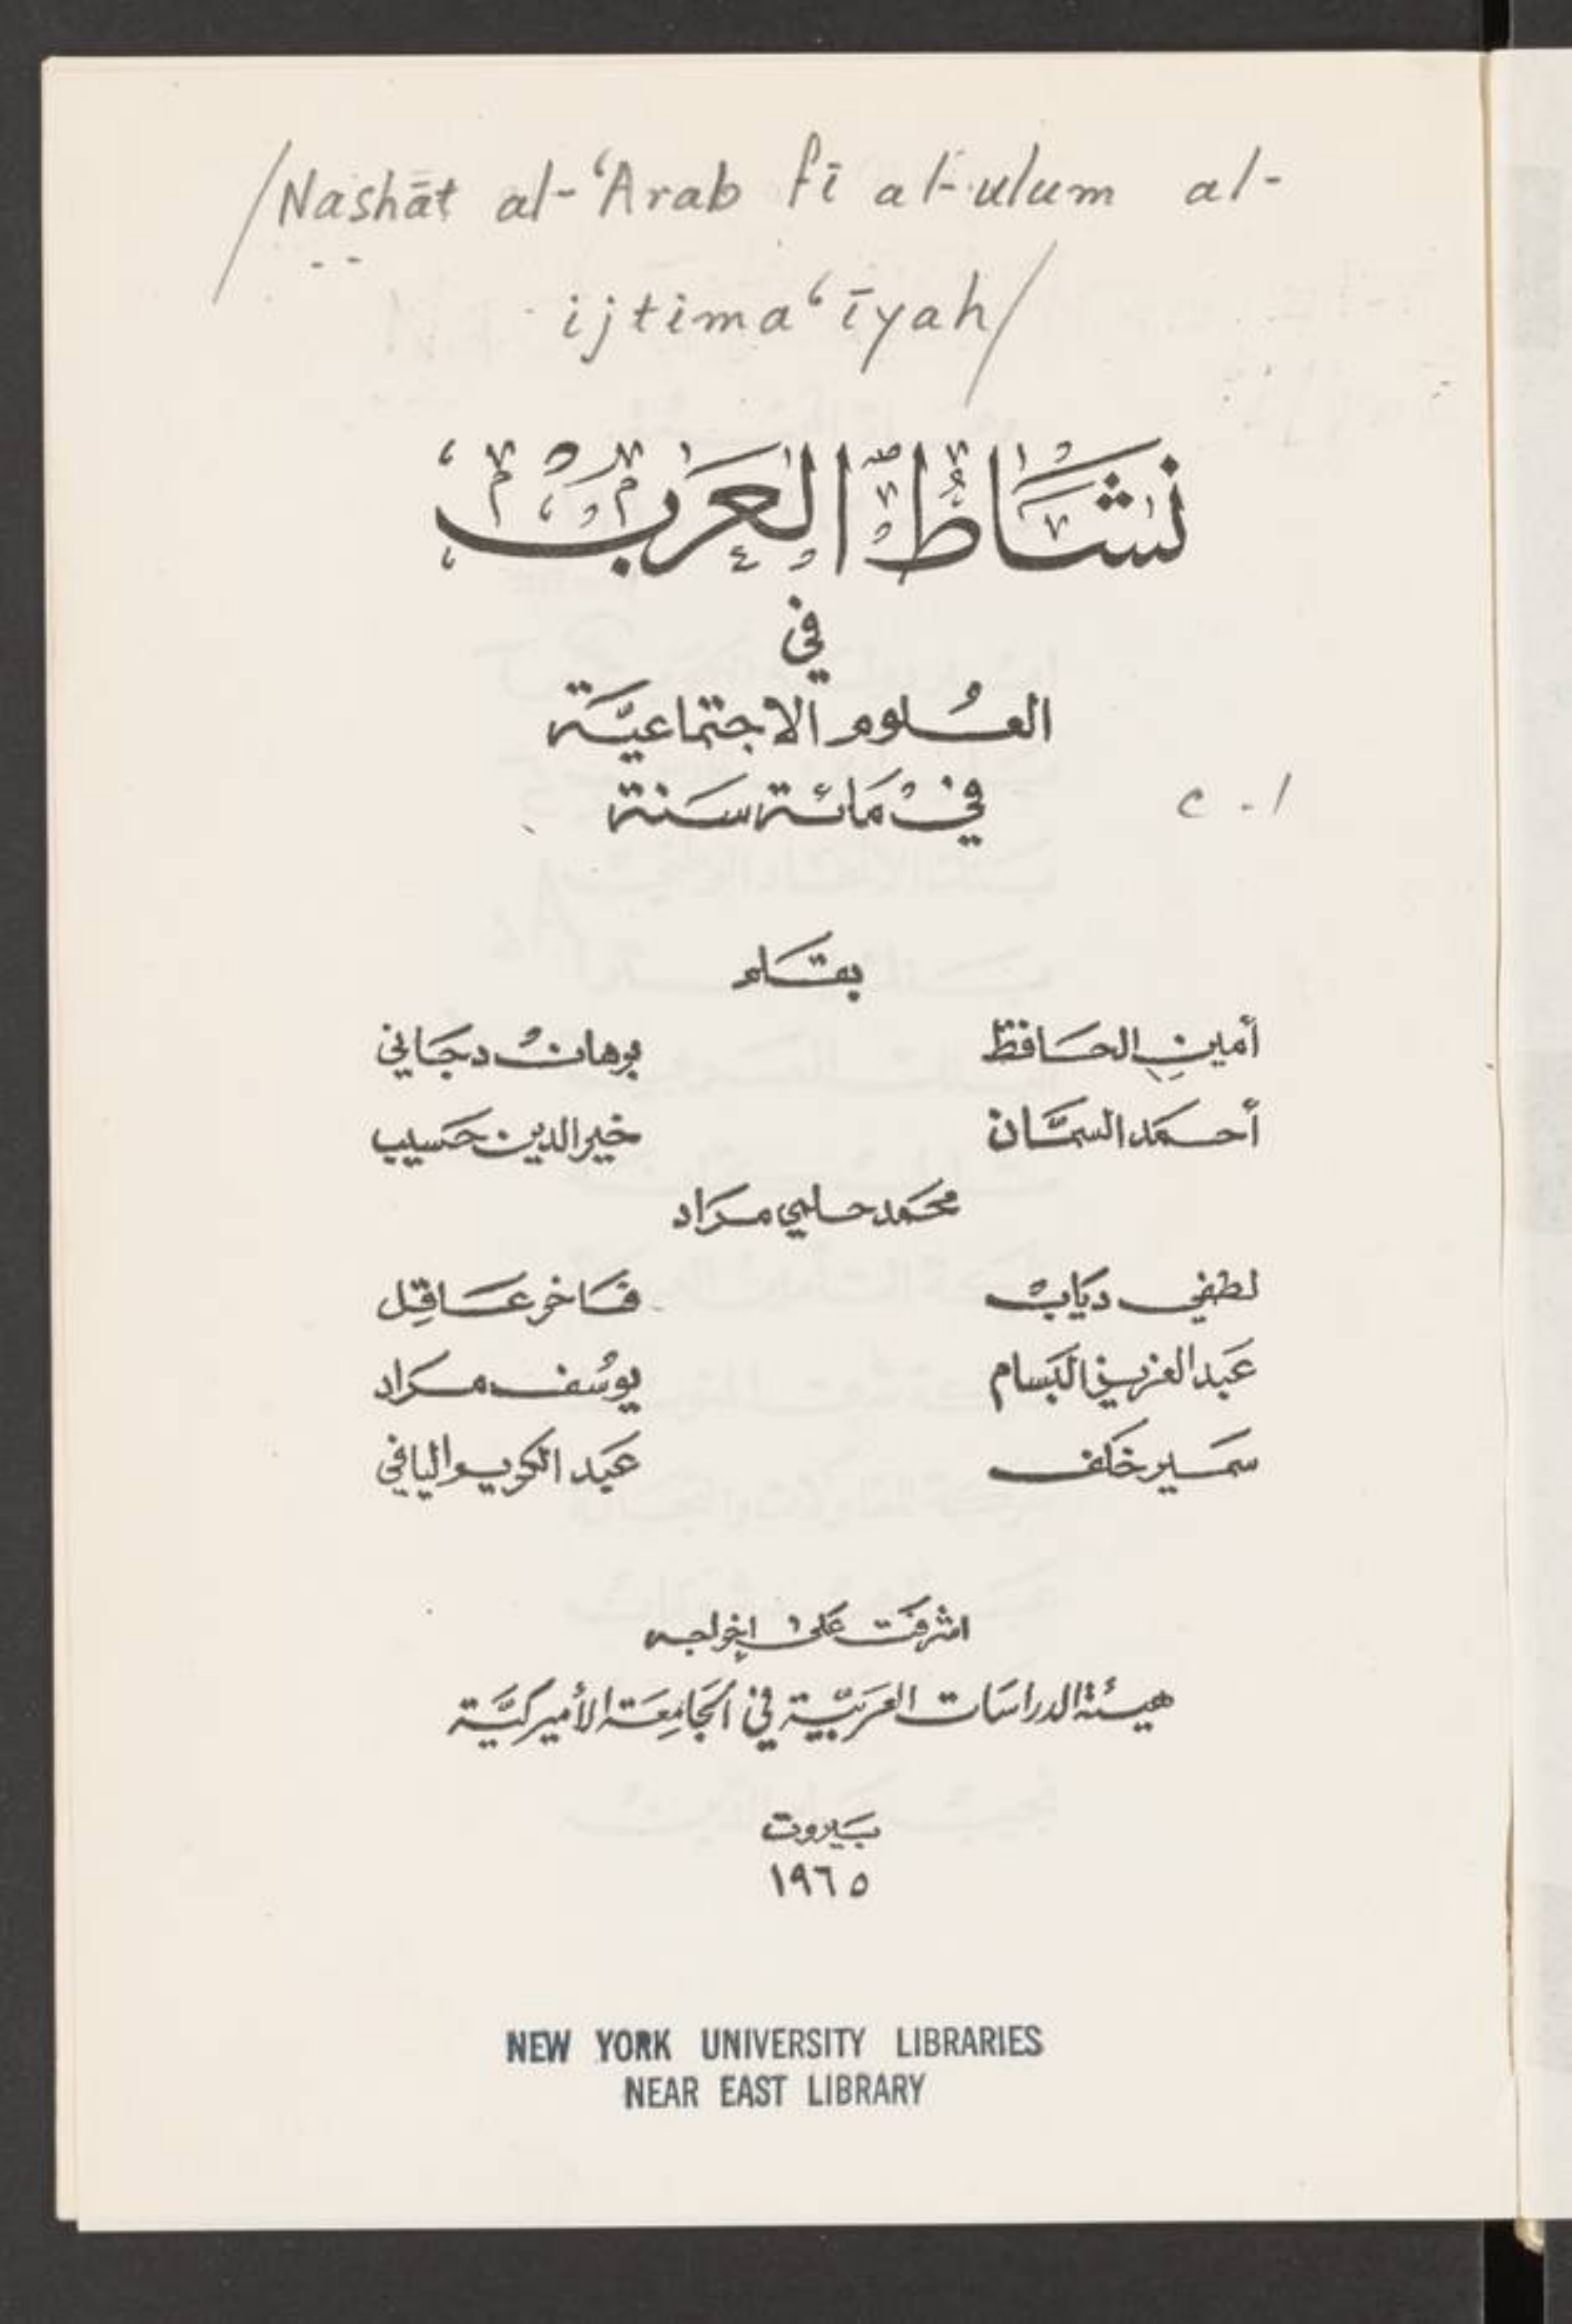 /Nashāt al-‘Arab fī al-ulum al-
ijtima‘īyah/
نشاط العرب
في
العلوم الاجتماعية
في مائة سنة
c.1
بقلم
أمين الحافظ برهان دجاني
أحمد السمّان خير الدين حسيب
محمد حلمي مراد
لطفي دياب فاخر عاقل
عبد العزيز البسام يوسف مراد
سمير خلف عبد الكريم اليافي
اشرفت على إخراجه
هيئة الدراسات العربيّة في الجامعة الأميركيّة
بيروت
١٩٦٥
NEW YORK UNIVERSITY LIBRARIES
NEAR EAST LIBRARY